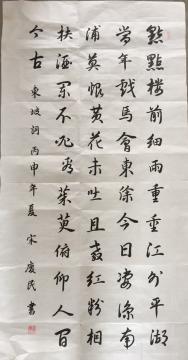 點點樓前細雨重重江外平湖
當年戲馬會東徐今日凄涼南
浦莫恨黃花未吐且教紅粉相
扶酒闌不必看茱萸俯仰人間
今古 東坡詞丙申年夏 宋慶民書